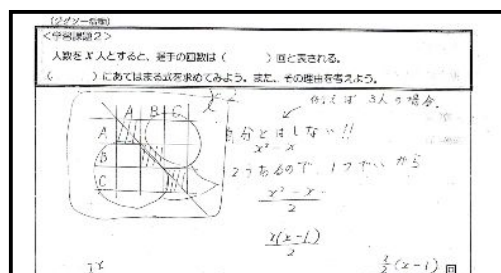 (ジグソー活動)
<学習課題2>
人数をx人とすると、握手の回数は（　　　）回と表される。
（　　　）にあてはまる式を求めてみよう。また、その理由を考えよう。
例えば 3人の場合.
A B C
A
B
C
自分とはしない!!
x²-x
2つあるので、1つでいいから
x²-x/2
x(x-1)/2
x/2(x-1) 回